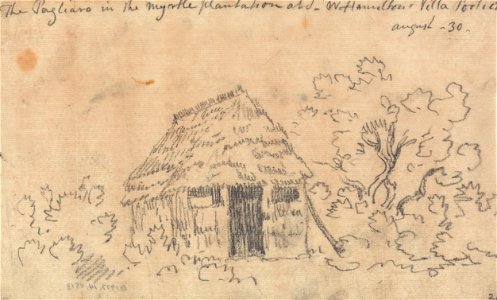 The Pagliaro in the Myrtle plantation at S. W. Hamilton's Villa Portici
august - 30 -